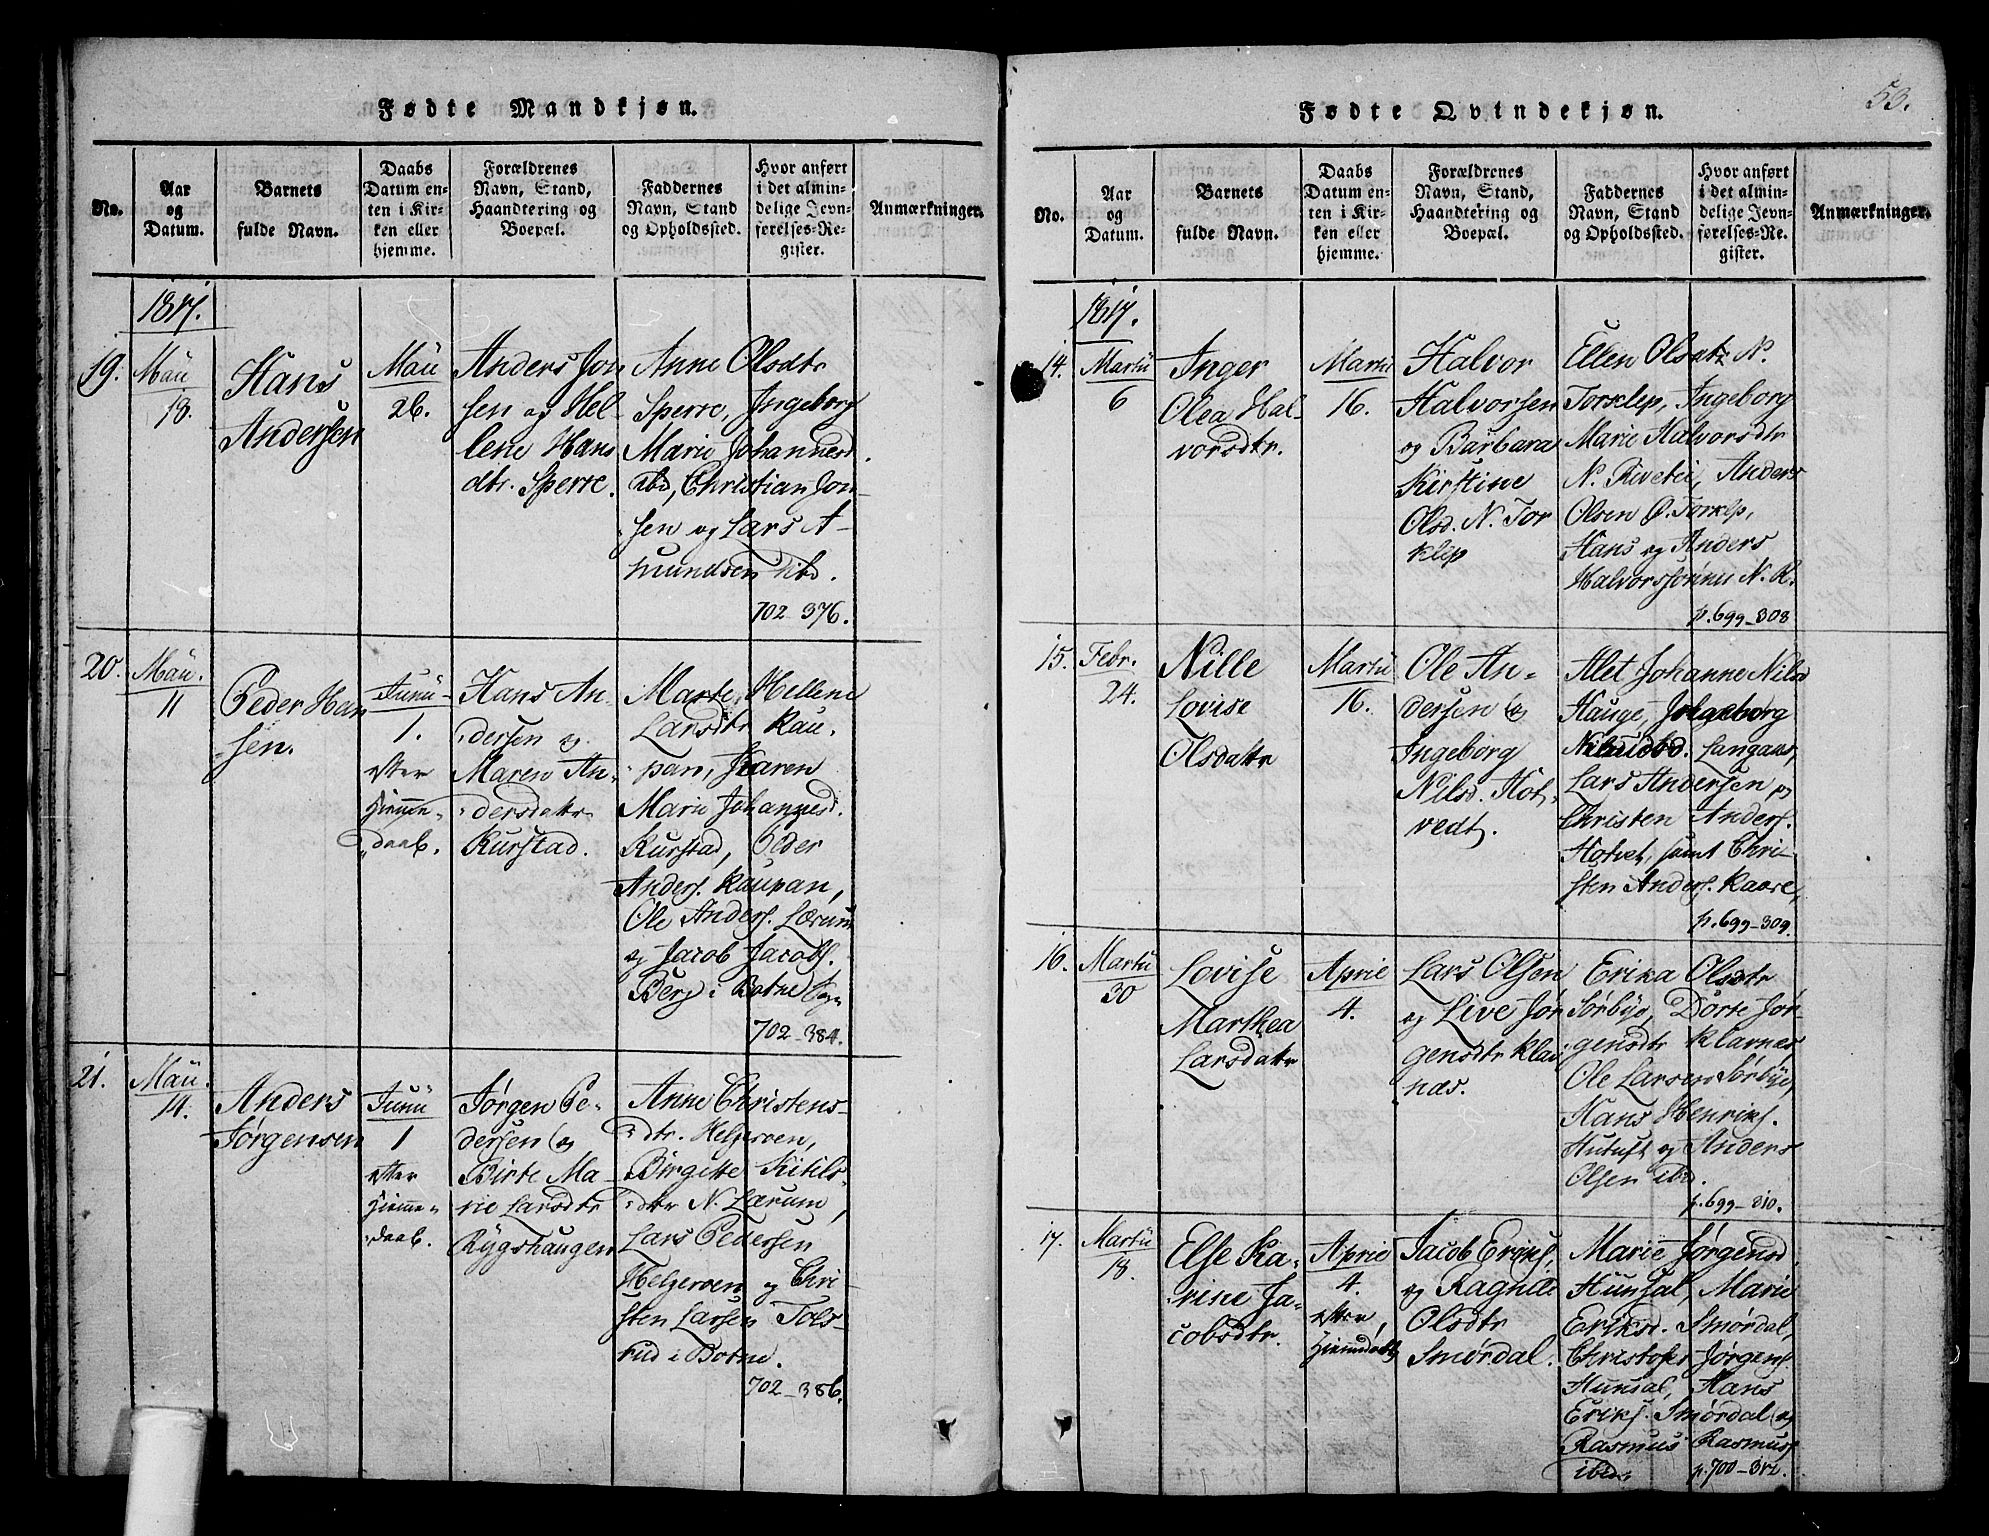 Fødte Mandkjøn.
No.
Aar
og
Datum.
Barnets
fulde Navn.
Daabs
Datum en-
ten i Kir-
ken eller
hjemme.
Forældrenes
Navn, Stand,
Haandtering og
Boepæl.
Faddernes
Navn, Stand
og Opholdssted.
Hvor anført
i det almin-
delige Jevn-
førelses-Re-
gister.
Anmærkninger.
1817.
19.
Maii
18.
Hans
Andersen
Maii
26.
Anders Jon
sen og Hel-
lene Hans
dtr. Sperre.
Anne Olsdtr
Sperre, Ingeborg
Marie Johannesd.
ibd, Christian Jon-
sen og Lars A-
mundsen ibd.
702-376.
20.
Maii.
11
Peder Han
sen.
Junii
1.
efter
Hjemme-
daab.
Hans An-
dersen og
Maren An-
dersdatr
Kurstad.
Marte Hellene
Larsdtr Kau-
pan, Karen
Marie Johannesd.
Kurstad, Peder
Anders. Kaupan,
Ole Anders. Lærum
og Jacob Jacobs.
Berg i Botne Sogn
702-384.
21.
Maii.
14.
Anders
Jørgensen
Junii
1
efter
Hjemme-
daab.
Jørgen Pe-
dersen og
Birte Ma-
rie Larsdtr
Rygshaugen
Anne Christens-
dtr. Helgeroen,
Birgitte Kitils-
dtr N. Lærum,
Lars Pedersen
Helgeroen og Chri-
sten Larsen Tols-
rud i Botne.
702-386.
53.
Fødte Qvindekjøn.
No.
Aar
og
Datum.
Barnets
fulde Navn.
Daabs
Datum en-
ten i Kir-
ken eller
hjemme.
Forældrenes
Navn, Stand,
Haandtering og
Boepæl.
Faddernes
Navn, Stand
og Opholdssted.
Hvor anført
i det almin-
delige Jevn-
førelses-Re-
gister.
Anmærkninger.
1817.
14.
Martii
6
Inger
Olea Hal
vorsdtr.
Martii
16.
Halvor
Halvorsen
og Barbara
Kirstine
Olsd. N. Tor
klep
Ellen Olsatr N.
Torklep, Ingeborg
Marie Halvorsdtr
N. Riveti, Anders
Olsen Ø. Torklep,
Hans og Anders
Halvorssønner N. R.
p.699-308
15.
Febr.
24.
Nille
Lovise
Olsdatr
Martii
16.
Ole An-
dersen og
Ingeborg
Nilsd. Hot-
vedt.
Alet Johanne Nilsd
Hauge, Ingeborg
Langaas,
Lars Andersen og
Christen Anders.
Hotvet, samt Chri-
sten Anders. Kaare,
p.699-309.
16.
Martii
30
Lovise
Marthea
Larsdatr
April
4.
Lars Olsen
og Live Jør
gensdtr Klav
næs.
Erika Olsdtr
Sørbye, Dorte Jør-
gensdtr Klavnes
Ole Larsen Sørbye,
Hans Henriks.
Hutuft og Anders
Olsen ibd.
p.699-310.
17.
Martii
18.
Else Ka-
rine Ja-
cobsdtr.
Aprie
4.
efter
Hiemdaab
Jacob Eriks.
og Ragnild
Olsdtr
Smørdal.
Marie Jørgensd.
Hunsal, Marie
Eriksd. Smørdal,
Christofer Jørgens.
Hunsal, Hans
Eriks. Smørdal og
Rasmus Rasmus.
ibd.
p.700-312.